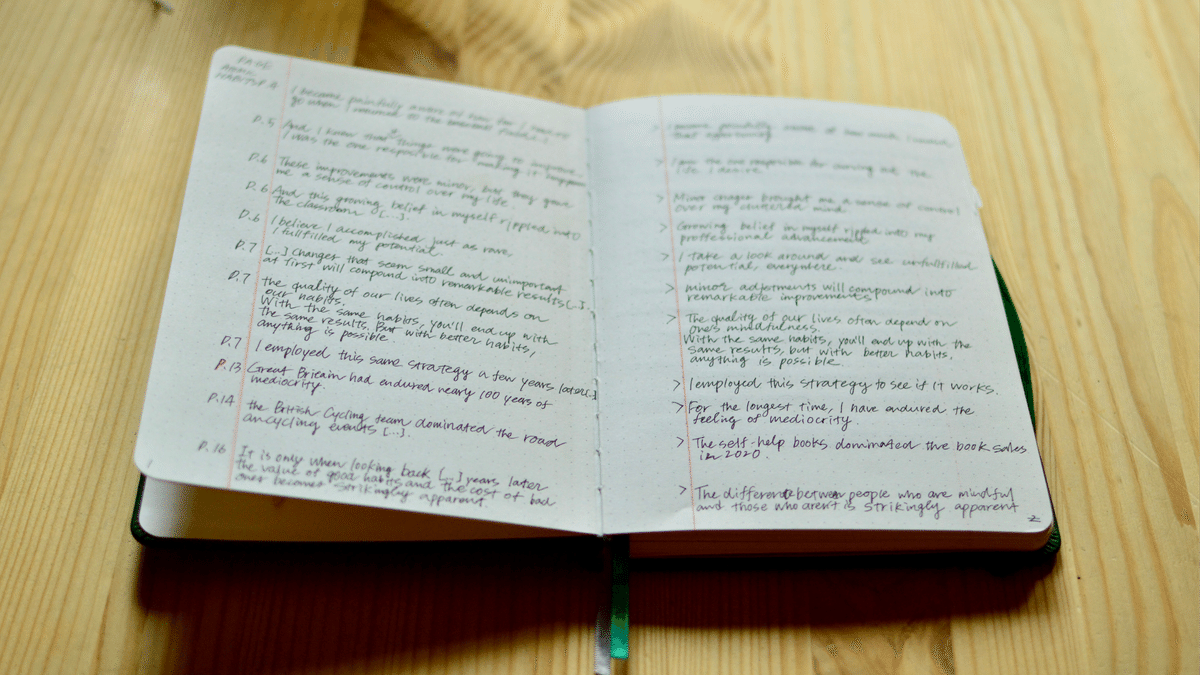 PAGE
ATOMIC
HABITS P.4
I became painfully aware of how far I had to
go when I returned to the baseball field
P.5
And I knew that if things were going to improve,
I was the one responsible for making it happen
P.6
These improvements were minor, but they gave
me a sense of control over my life.
P.6
And this growing belief in myself rippled into
the classroom [...].
P.6
I believe I accomplished just as rare,
I fullfilled my potential.
P.7
[...] Changes that seem small and unimportant
at first will compound into remarkable results [...].
P.7
the quality of our lives often depends on
our habits.
With the same habits, you'll end up with
the same results. But with better habits,
anything is possible.
P.7
I employed this same strategy a few years later[...]
P.13
Great Britain had endured nearly 100 years of
mediocrity.
P.14
the British Cycling team dominated the road
ancycling events [...].
P.16
It is only when looking back [...] years later
the value of good habits and the cost of bad
ones becomes strikingly apparent.
1
> I became painfully aware of how much I
that
> I am the one responsible for carving out the
life I desire
> Minor changes brought me a sense of control
over my cluttered mind.
> Growing belief in myself rippled into my
proffessional advancement
> I take a look around and see unfullfilled
potential, everywhere.
> minor adjetments will compound into
remarkable improvements
> The quality of our lives often depend on
one's mindfulness.
With the same habits, you'll end up with the
same results, but with better habits.
anything is possible.
> I employed this strategy to see if it works.
> For the longest time, I have endured the
feeling of mediocrity.
> The self-help books dominated the book sales
in 2020.
> The difference between people who are mindful
and those who aren't is strikingly apparent
2